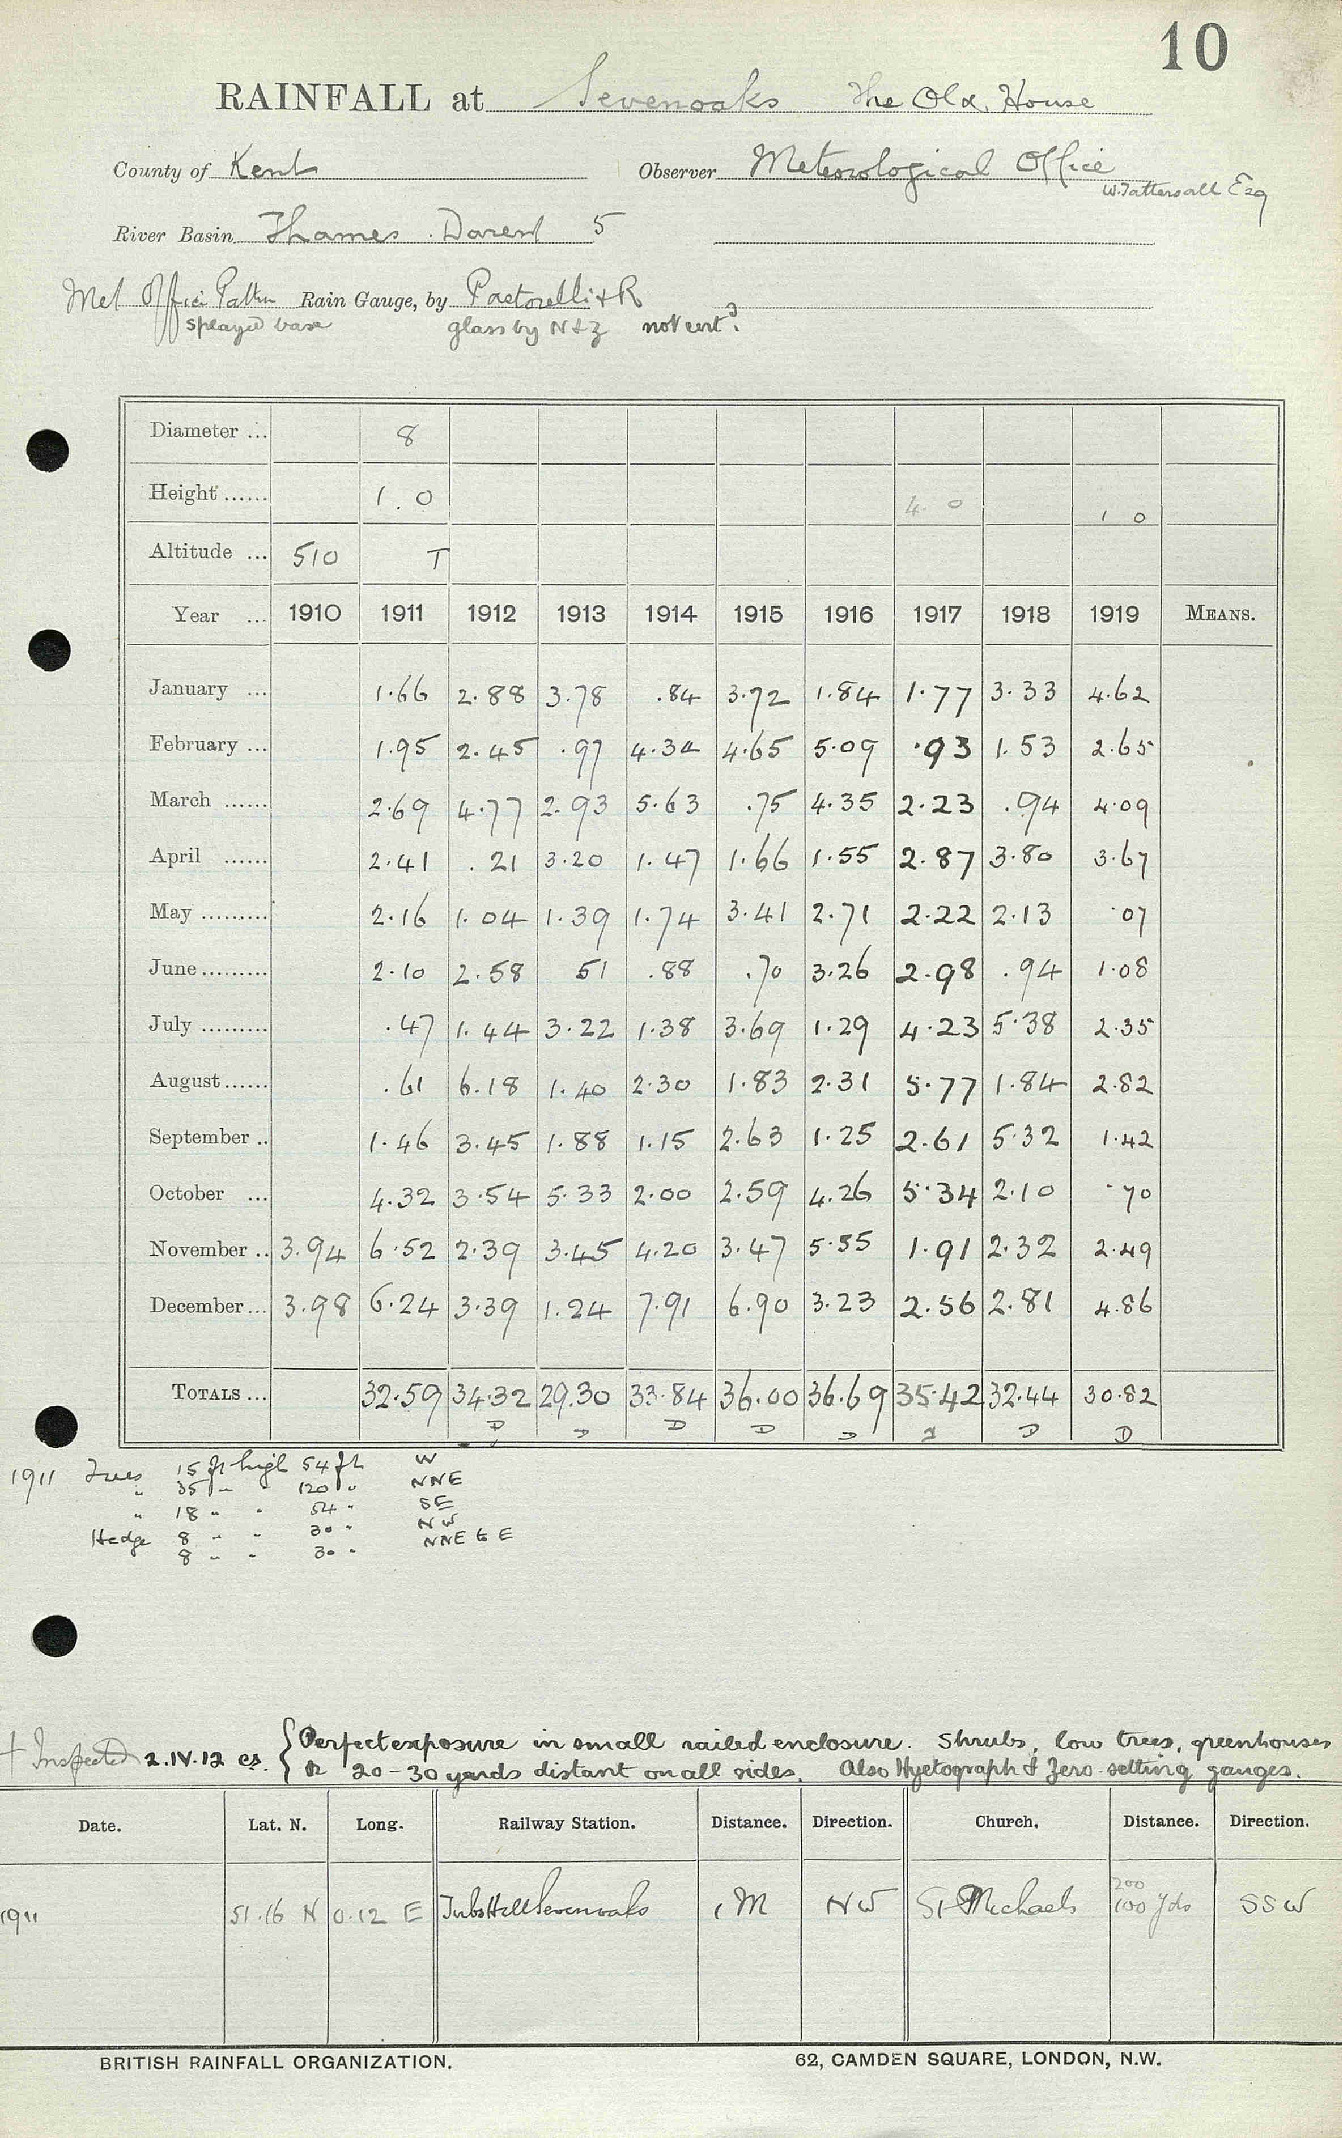 10
RAINFALL at Sevenoaks The Old House
County of Kent Observer Meteorological Office
W. Tattersall Esq
River Basin Thames Darent 5
Met Office Pattn Rain Gauge, by Pastorelli & R
splayed base glass by N & Z not cert?
Diameter ... 8
Height ...... 1.0 4.0 1 0
Altitude ... 510 T
Year ... 1910 1911 1912 1913 1914 1915 1916 1917 1918 1919 MEANS.
January ... 1.66 2.88 3.78 .84 3.72 1.84 1.77 3.33 4.62
February ... 1.95 2.45 .97 4.34 4.65 5.09 .93 1.53 2.65
March ...... 2.69 4.77 2.93 5.63 .75 4.35 2.23 .94 4.09
April ...... 2.41 .21 3.20 1.47 1.66 1.55 2.87 3.80 3.67
May ......... 2.16 1.04 1.39 1.74 3.41 2.71 2.22 2.13 .07
June ......... 2.10 2.58 51 .88 .70 3.26 2.98 .94 1.08
July ......... .47 1.44 3.22 1.38 3.69 1.29 4.23 5.38 2.35
August ...... .61 6.18 1.40 2.30 1.83 2.31 5.77 1.84 2.82
September .. 1.46 3.45 1.88 1.15 2.63 1.25 2.61 5.32 1.42
October ... 4.32 3.54 5.33 2.00 2.59 4.26 5.34 2.10 .70
November .. 3.94 6.52 2.39 3.45 4.20 3.47 5.55 1.91 2.32 2.49
December ... 3.98 6.24 3.39 1.24 7.91 6.90 3.23 2.56 2.81 4.86
TOTALS ... 32.59 34.32 29.30 33.84 36.00 36.69 35.42 32.44 30.82
D D D D D D D
1911 Trees 15 ft high 54 ft W
" 35 " " 120 " NNE
" 18 " " 54 " SE
Hedge 8 " " 30 " NW
8 " " 30 " NNE to E
+ Inspected 2.IV.12 cs. { Perfect exposure in small railed enclosure. Shrubs, low trees, greenhouses
20-30 yards distant on all sides. Also Hyetograph & Zero-setting gauges.
Date. Lat. N. Long. Railway Station. Distance. Direction. Church. Distance. Direction.
200
1911 51.16 N 0.12 E Tubs Hill Sevenoaks 1 M NW St Michaels 100 yds SSW
BRITISH RAINFALL ORGANIZATION. 62, CAMDEN SQUARE, LONDON, N.W.